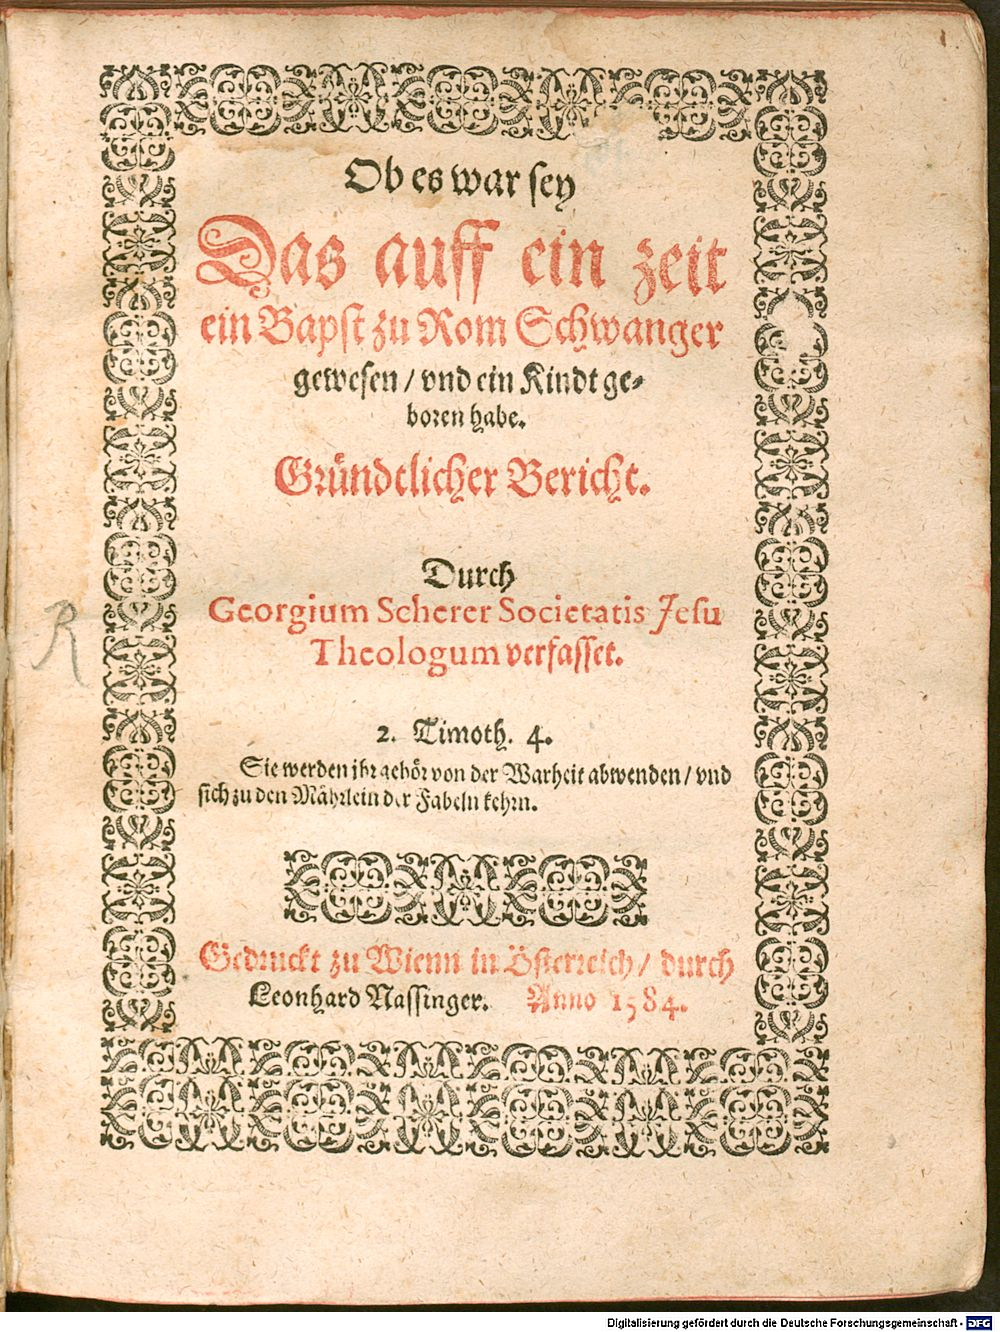 Ob es war sey
Das auff ein zeit
ein Bapst zu Rom Schwanger
gewesen / vnd ein Kindt ge-
boren habe.
Gründtlicher Bericht.
Durch
Georgium Scherer Societatis Jesu
Theologum verfasset.
2. Timoth. 4.
Sie werden ihr gehör von der Warheit abwenden / vnd
sich zu den Mährlein der Fabeln kehrn.
Gedruckt zu Wienn in Österreich / durch
Leonhard Nassinger. Anno 1584.
R
Digitalisierung gefördert durch die Deutsche Forschungsgemeinschaft - DFG